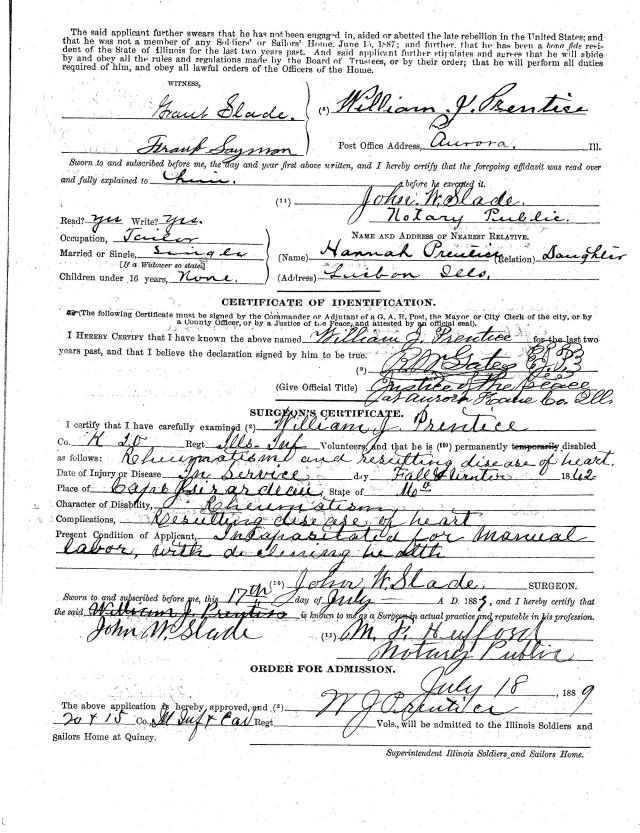 The said applicant further swears that he has not been engaged in, aided or abetted the late rebellion in the United States; and
that he was not a member of any Soldiers' or Sailors' Home, June 15, 1887; and further, that he has been a bona fide resi-
dent of the State of Illinois for the last two years past. And said applicant further stipulates and agrees that he will abide
by and obey all the rules and regulations made by the Board of Trustees, or by their order; that he will perform all duties
required of him, and obey all lawful orders of the Officers of the Home.
WITNESS,
Grant Slade. (8) William J. Prentice
Frank Post Office Address, Aurora. Ill.
Sworn to and subscribed before me, the day and year first above written, and I hereby certify that the foregoing affidavit was read over
and fully explained to him. before he executed it.
(11) John W. Slade.
Notary Public.
Read? yes Write? yes.
Occupation, Tailor
Married or Single, Single
[If a Widower so state]
Children under 16 years, None.
NAME AND ADDRESS OF NEAREST RELATIVE.
(Name) Hannah Prentice (Relation) Daughter
(Address) Lisbon Ills.
CERTIFICATE OF IDENTIFICATION.
(The following Certificate must be signed by the Commander or Adjutant of a G. A. R. Post, the Mayor or City Clerk of the city, or by
a County Officer, or by a Justice of the Peace, and attested by an official seal).
I HEREBY CERTIFY that I have known the above named William J. Prentice for the last two
years past, and that I believe the declaration signed by him to be true.
(9) Gates
(Give Official Title) Justice of the Peace
at Aurora Kane Co. Ills
SURGEON'S CERTIFICATE.
I certify that I have carefully examined (2) William J Prentice
Co. K 20 Regt Ills Inf Volunteers, and that he is (10) permanently temporarily disabled
as follows: Rheumatism and resulting disease of heart.
Date of Injury or Disease In service day Fall & Winter 1862
Place of Cape Girardeau, State of Mo
Character of Disability, Rheumatism
Complications, Resulting disease of heart
Present Condition of Applicant, Incapasitated for manual
labor, with declining health
(10) John W. Slade. SURGEON.
Sworn to and subscribed before me, this 17th day of July A D. 1889, and I hereby certify that
the said William J. Prentiss is known to me as a Surgeon in actual practice and reputable in his profession.
John W Slade (11) M. P.
Notary Public
ORDER FOR ADMISSION.
July 18, 1889
The above application is hereby approved, and (2) W J Prentice
20 & 15 Co. Ill Inf & Cav Regt Vols., will be admitted to the Illinois Soldiers and
Sailors Home at Quincy.
Superintendent Illinois Soldiers and Sailors Home.